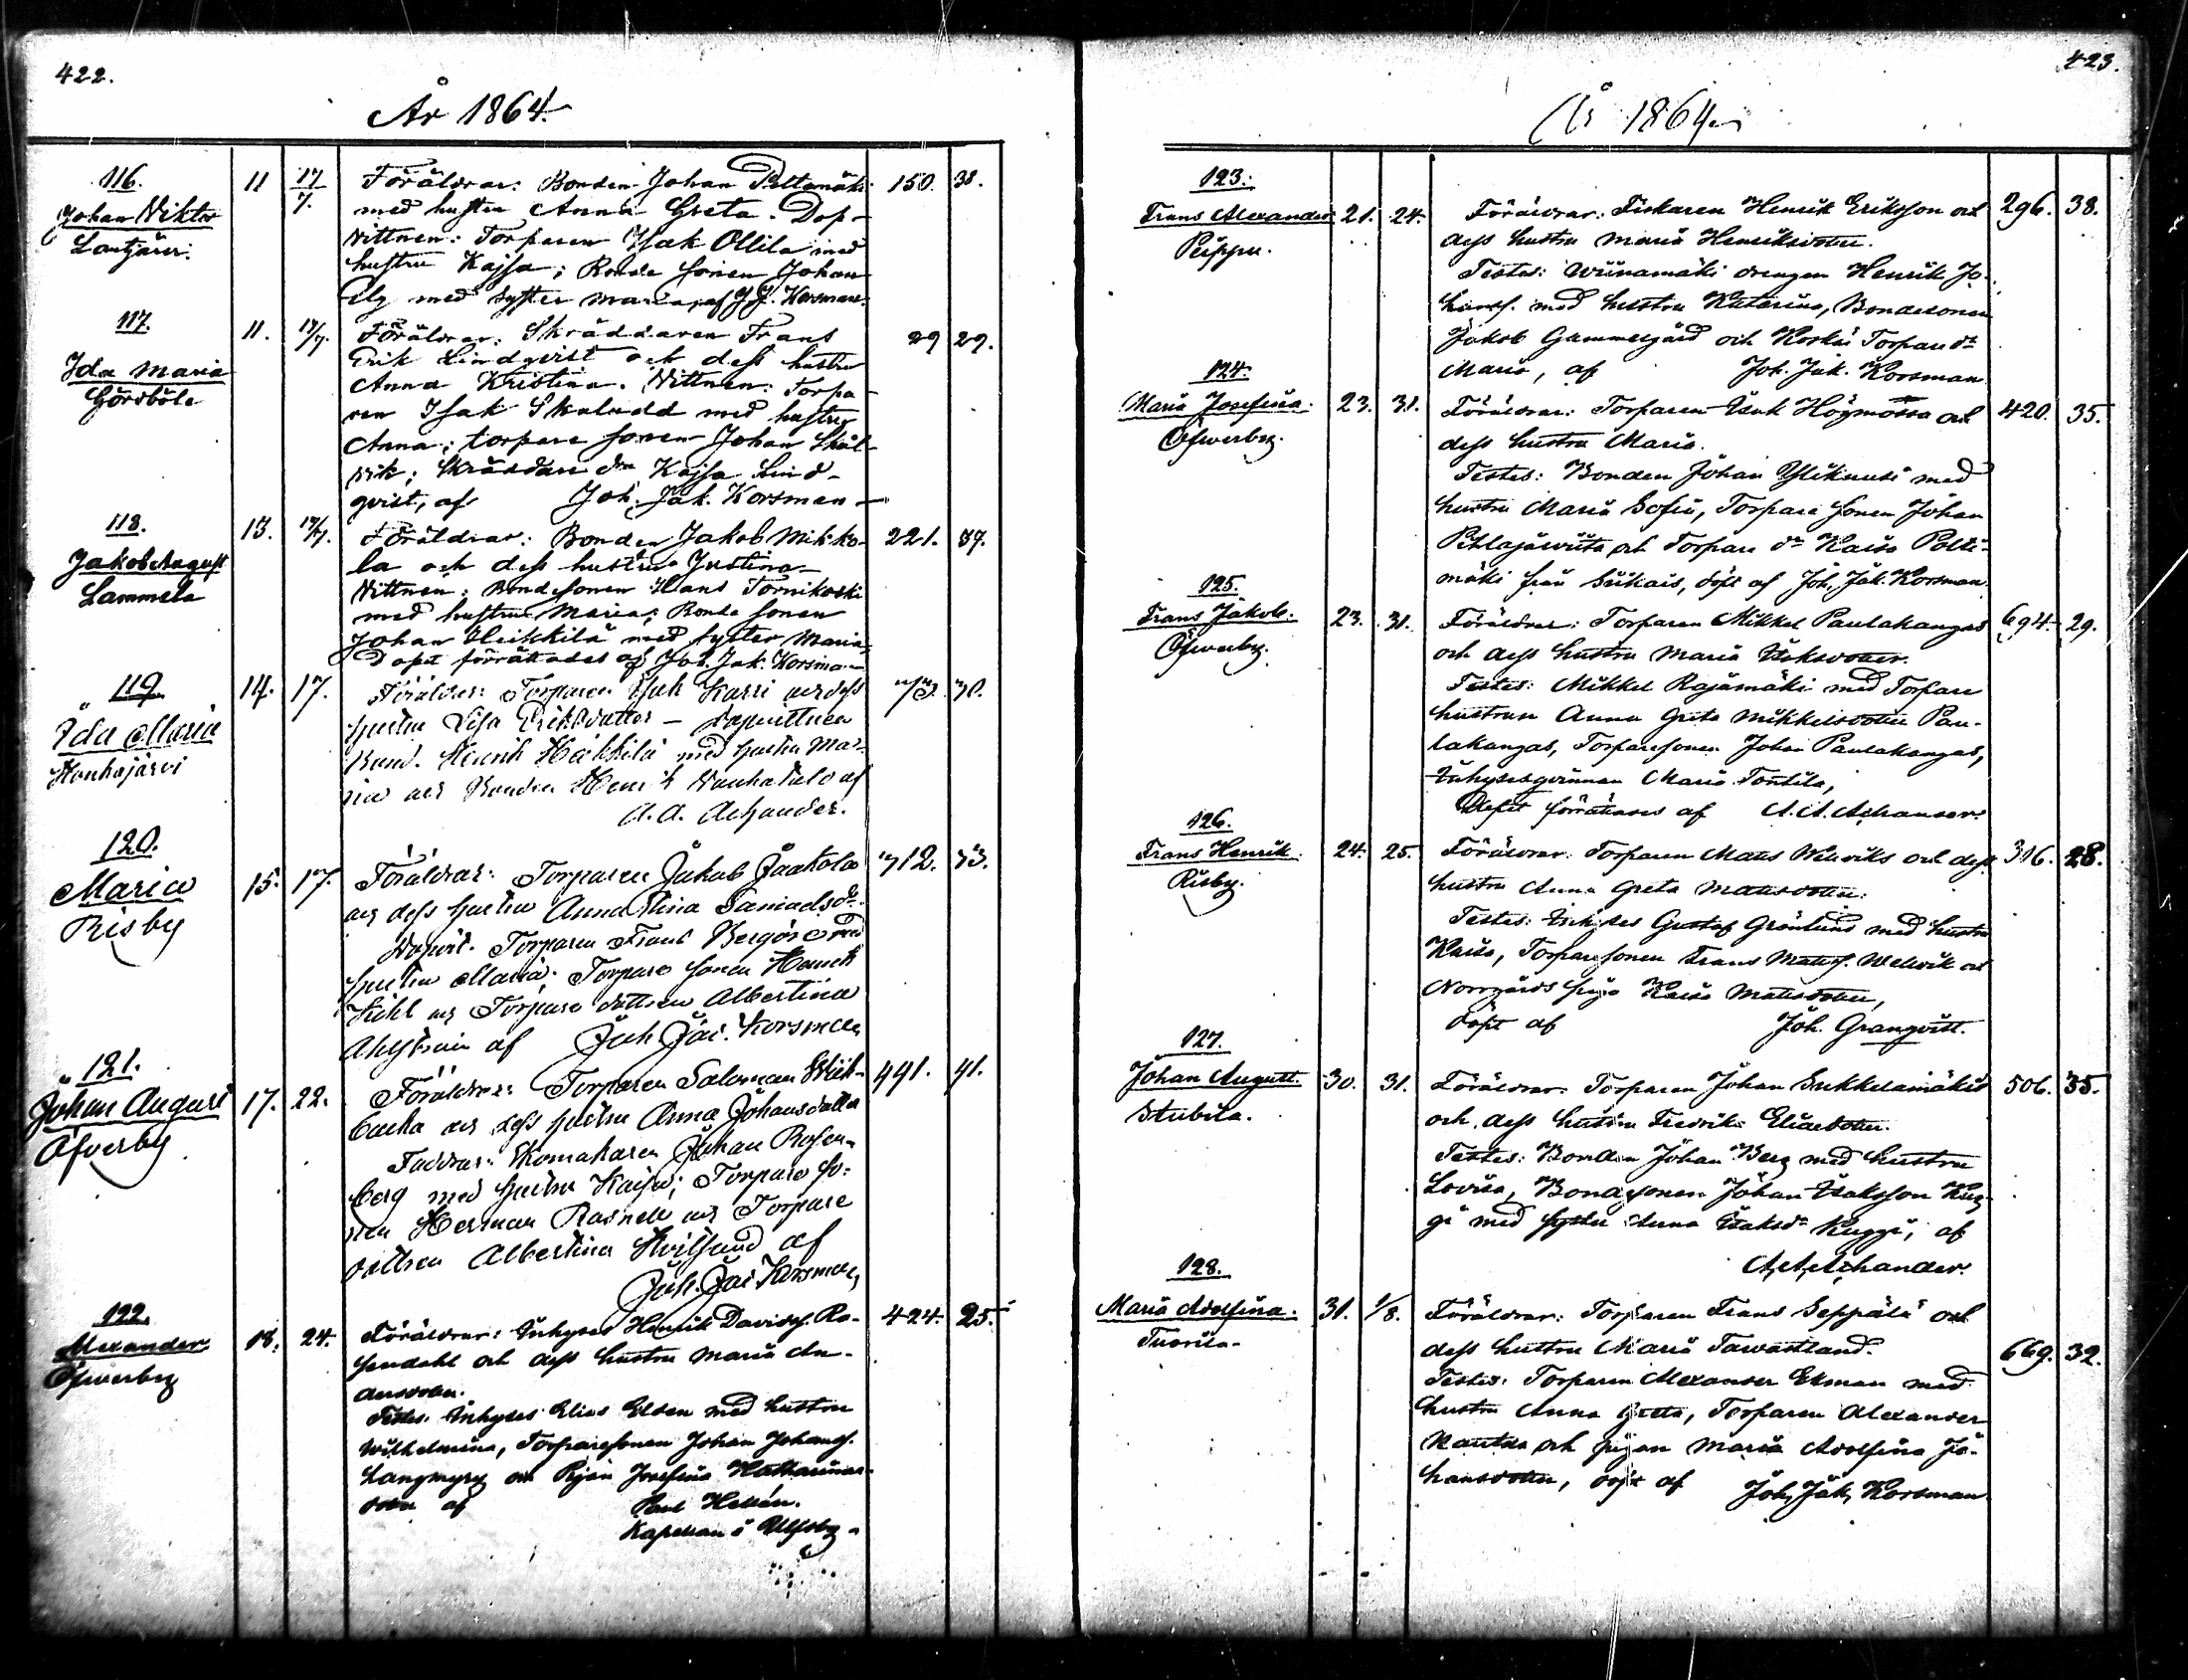 422.
År 1864.
116.
Johan Viktor
Lautjärvi.
11
17/7.
Föräldrar: Bonden Johan Peltomäki
med hustru Anna Greta. Dop-
vittnen: Torparen Isak Ollila med
hustru Kajsa; Bonde sonen Johan
Ely med syster Maria, af J. J. Korsman.
150.
38.
117.
Ida Maria
Gårdböle
11.
17/7.
Föräldrar: Skräddaren Frans
Erik Lindqvist och dess hustru
Anna Kristina. Vittnen: Torpa-
ren Isak Skaludd med hustru
Anna; torpare sonen Johan Skäl-
vik; Skräddare d:n Kajsa Lind-
qvist, af Joh. Jak. Korsman
29
29.
118.
Jakob August
Lammela
13.
17/7.
Föräldrar: Bonden Jakob Mikko-
la och dess hustru Justina
Vittnen: Bondesonen Hans Tornikoski
med hustru Maria; Bonde sonen
Johan Heikkilä med syster Maria,
Dopet förrättades af Joh. Jak. Korsman
221.
37.
119.
Ida Maria
Honkajärvi
14.
17.
Föräldrar: Torparen Isak Karri och dess
hustru Lisa Eriksdotter – dopvittnen
Bond. Henrik Häkkilä med hustru Ma-
ria och Bonden Henrik Vanhatalo af
A. A. Achander.
73.
30.
120.
Maria
Risby
15.
17.
Föräldrar: Torparen Jakob Jaakola
och dess hustru Anna Stina Samuelsd:r
Dopvit. Torparen Frans Bergös med
hustru Maria; Torpare sonen Henrik
och Torpare dottren Albertina
af Joh. Jac. Korsman
712.
33.
121.
Johan August
Åfverby
17.
22.
Föräldrar: Torparen Salomon
backa och dess hustru Anna Johansdotter
Faddrar: Skomakaren Johan Rosen-
berg med hustru Kajsa; Torpare so-
nen Herman Rosnell och Torpare
dottren Albertina af
Joh. Jac. Korsman
441.
41.
122.
Alexander
Öfwerby
18.
24.
Föräldrar: Inhyses Henrik Davids. Ro-
sendahl och dess hustru Maria An-
dersdotter.
Testes. Inhyses Elias Elden med hustru
Wilhelmina, Torparesonen Johan Johans.
Langmyry och Pigan Josefina Katharinas-
dotter af Paul Hellén.
Kapellan i Ulfsby
424.
25.
423.
År 1864
123.
Frans Alexander
Peippu.
21.
24.
Föräldrar: Fiskaren Henrik Eriksson och
dess hustru Maria Henriksdotter.
Testes: Wiinamäki drengen Henrik Jo-
hanss. med hustru Katarina, Bondesonen
Jakob Gammelgård och Koski Torpare d:r
Maria, af Joh. Jak. Korsman
296.
38.
124.
Maria Josefina.
Öfwerby.
23.
31.
Föräldrar: Torparen Isak Högmossa och
dess hustru Maria.
Testes: Bonden Johan Ylikuusi med
hustru Maria Sofia, Torpare sonen Johan
Pihlajaviita och Torpare d:r Kaisa Polti-
mäki från Siikais, döpt af Joh. Jak. Korsman
420.
35.
125.
Frans Jakob.
Öfwerby.
23.
31.
Föräldrar: Torparen Mikkel Paulakangas
och dess hustru Maria Isaksdotter.
Testes: Mikkel Rajamäki med Torpare
hustrun Anna Greta Mikkelsdotter Pau-
lakangas, Torparesonen Johan Paulakangas,
Inhysesqvinnan Maria Tontila,
Dopet förrättades af A. A. Achander.
694.
29.
126.
Frans Henrik.
Risby.
24.
25.
Föräldrar: Torparen Mats Welviks och dess
hustru Anna Greta Matsdotter.
Testes: Inhyses Gustaf Grönlund med hustru
Kaisa, Torparesonen Frans Matss. Welvik och
Norrgårds piga Kaisa Matsdotter,
döpt af Joh. Granqvist.
316.
28.
127.
Johan August.
Stubila.
30.
31.
Föräldrar: Torparen Johan Sukkelamäki
och dess hustru Fredrika Eliaedotter.
Testes: Bonden Johan Berg med hustru
Lovisa, Bondesonen Johan Isaksson Kug-
gi med syster Anna Isaksd:r Kuggi, af
A. A. Achander.
506.
35.
128.
Maria Adolfina.
Tuorila.
31.
1/8.
Föräldrar: Torparen Frans Seppälä och
dess hustru Maria Tawastland.
Testes: Torparen Alexander Ekman med
hustru Anna Greta, Torparen Alexander
Rautaa och pigan Maria Adolfina Jo-
hansdotter, döpt af Joh. Jak. Korsman
669.
32.